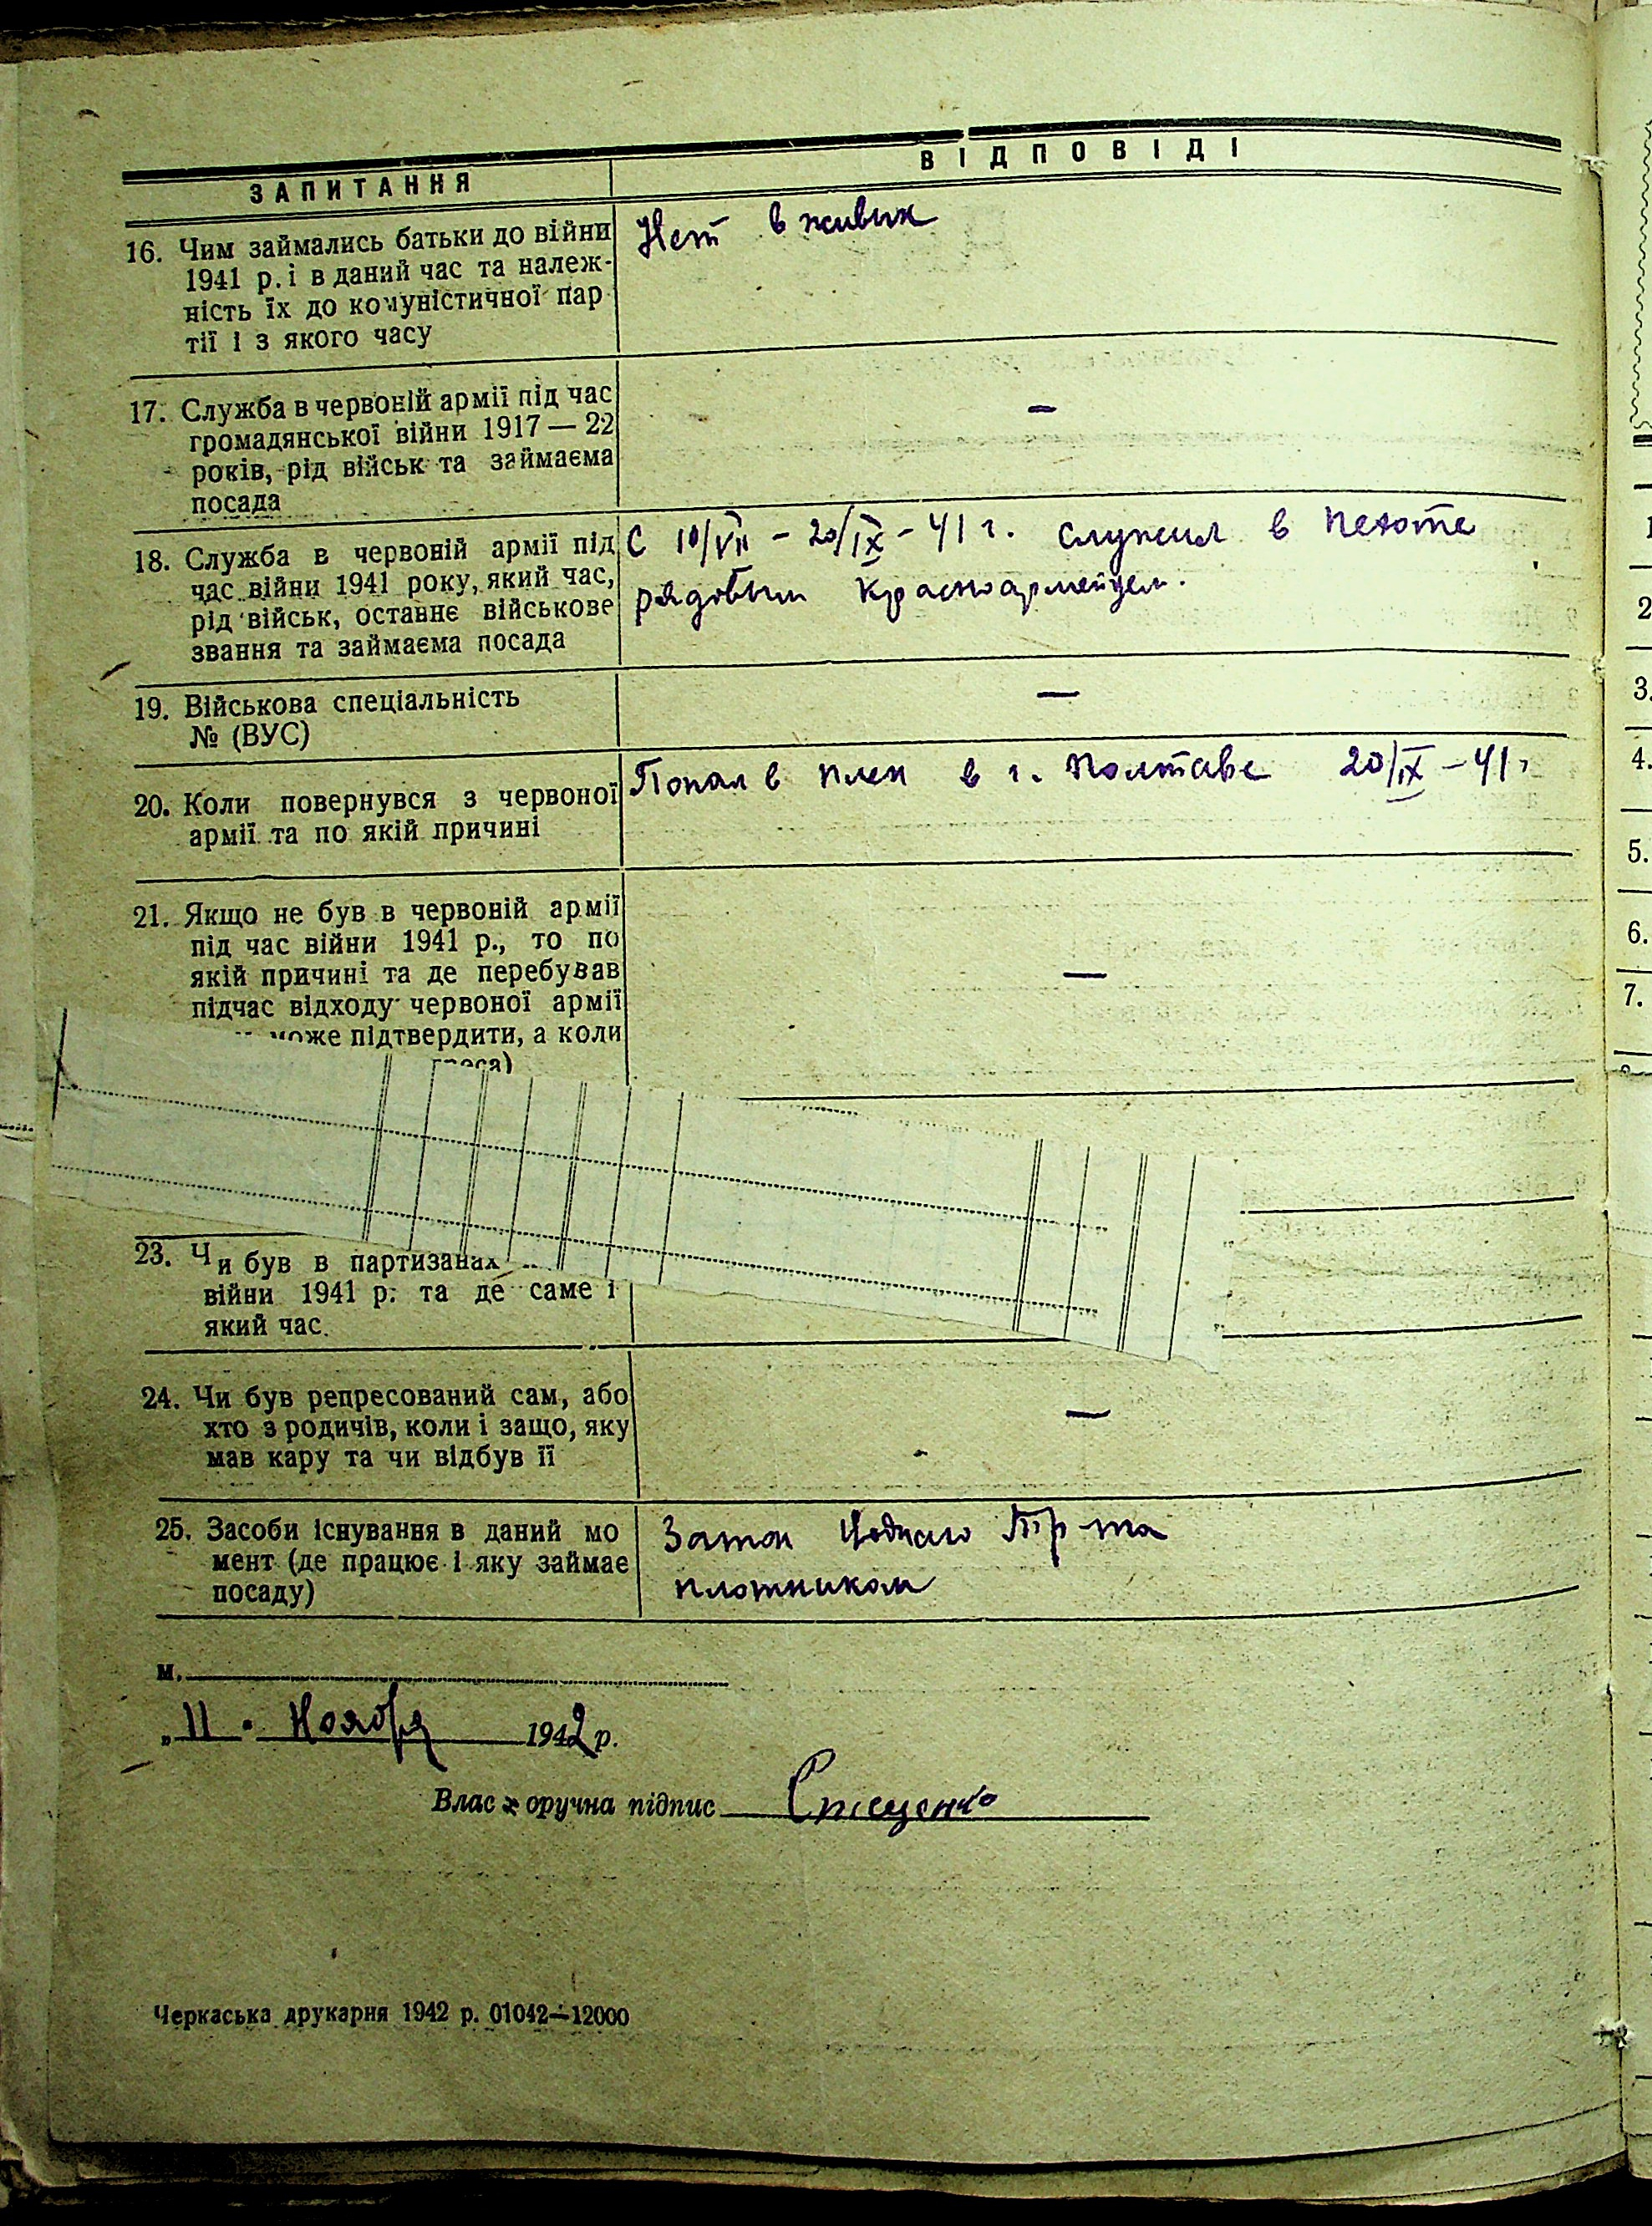 ЗАПИТАННЯ
ВІДПОВІДІ
16. Чим займались батьки до війни
1941 р. і в даний час та належ-
ність їх до комуністичної пар
тії і з якого часу
Нет в живых
17. Служба в червоній армії під час
громадянської війни 1917 — 22
років, рід військ та займаєма
посада
—
18. Служба в червоній армії під
час війни 1941 року, який час,
рід військ, останнє військове
звання та займаєма посада
С 10/VII - 20/IX - 41 г. служил в пехоте
рядовым красноармейцем.
19. Військова спеціальність
№ (ВУС)
—
20. Коли повернувся з червоної
армії та по якій причині
Попал в плен в г. Полтаве 20/IX - 41 г
21. Якщо не був в червоній армії
під час війни 1941 р., то по
якій причині та де перебував
підчас відходу червоної армії
може підтвердити, а коли
—
23. Чи був в партизанах
війни 1941 р. та де саме і
який час.
24. Чи був репресований сам, або
хто з родичів, коли і защо, яку
мав кару та чи відбув її
—
25. Засоби існування в даний мо
мент (де працює і яку займає
посаду)
Затон Тр-та
плотником
м.
„ 11 " Ноября 1942 р.
Власноручна підпис
Черкаська друкарня 1942 р. 01042—12000
1
2
3.
4.
5.
6.
7.